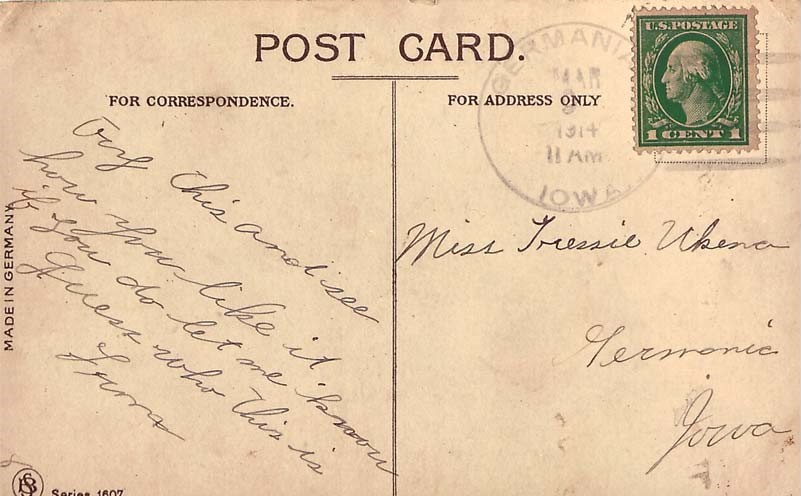 POST CARD.
FOR CORRESPONDENCE.
FOR ADDRESS ONLY
GERMANIA
MAR
1914
11 AM
IOWA
U.S. POSTAGE
1 CENT 1
Try this and see
how you like it
if you do let me know
Guess who this is
from
Miss Tressie Ukena
Germania
Iowa
MADE IN GERMANY
Series 1607